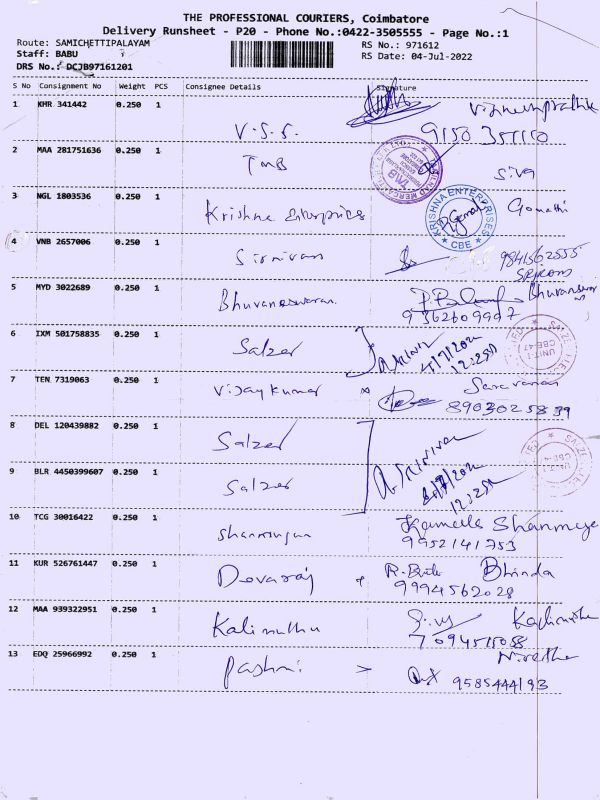 THE PROFESSIONAL COURIERS, Coimbatore
Delivery Runsheet - P20 - Phone No.:0422-3505555 - Page No.:1
Route: SAMICHETTIPALAYAM
RS No.: 971612
Staff: BABU
RS Date: 04-Jul-2022
DRS No.: DCJB97161201
S No Consignment No Weight PCS Consignee Details Signature
1 KHR 341442 0.250 1
V.S.S. 9150 351110
2 MAA 281751636 0.250 1
TMB Siva
3 NGL 1803536 0.250 1
Krishna Enterprises Gomathi
KRISHNA ENTERPRISES CBE
4 VNB 2657006 0.250 1
Srinivasan 9841562555
5 MYD 3022689 0.250 1
Bhuvaneswaran 9362609997
6 IXM 501758835 0.250 1
Salzer
7 TEN 7319063 0.250 1
Vijay Kumar Saravanan
8903025839
8 DEL 120439882 0.250 1
Salzer
9 BLR 4450399607 0.250 1
Salzer
10 TCG 30016422 0.250 1
Shanmugam
9952141753
11 KUR 526761447 0.250 1
Devaraj Bhinda
9994562028
12 MAA 939322951 0.250 1
Kalimuthu
7094515058
13 EDQ 25966992 0.250 1
9585444193